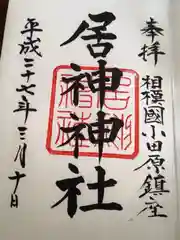 奉拝
相模國小田原鎮座
居神神社
平成三十七年三月十日